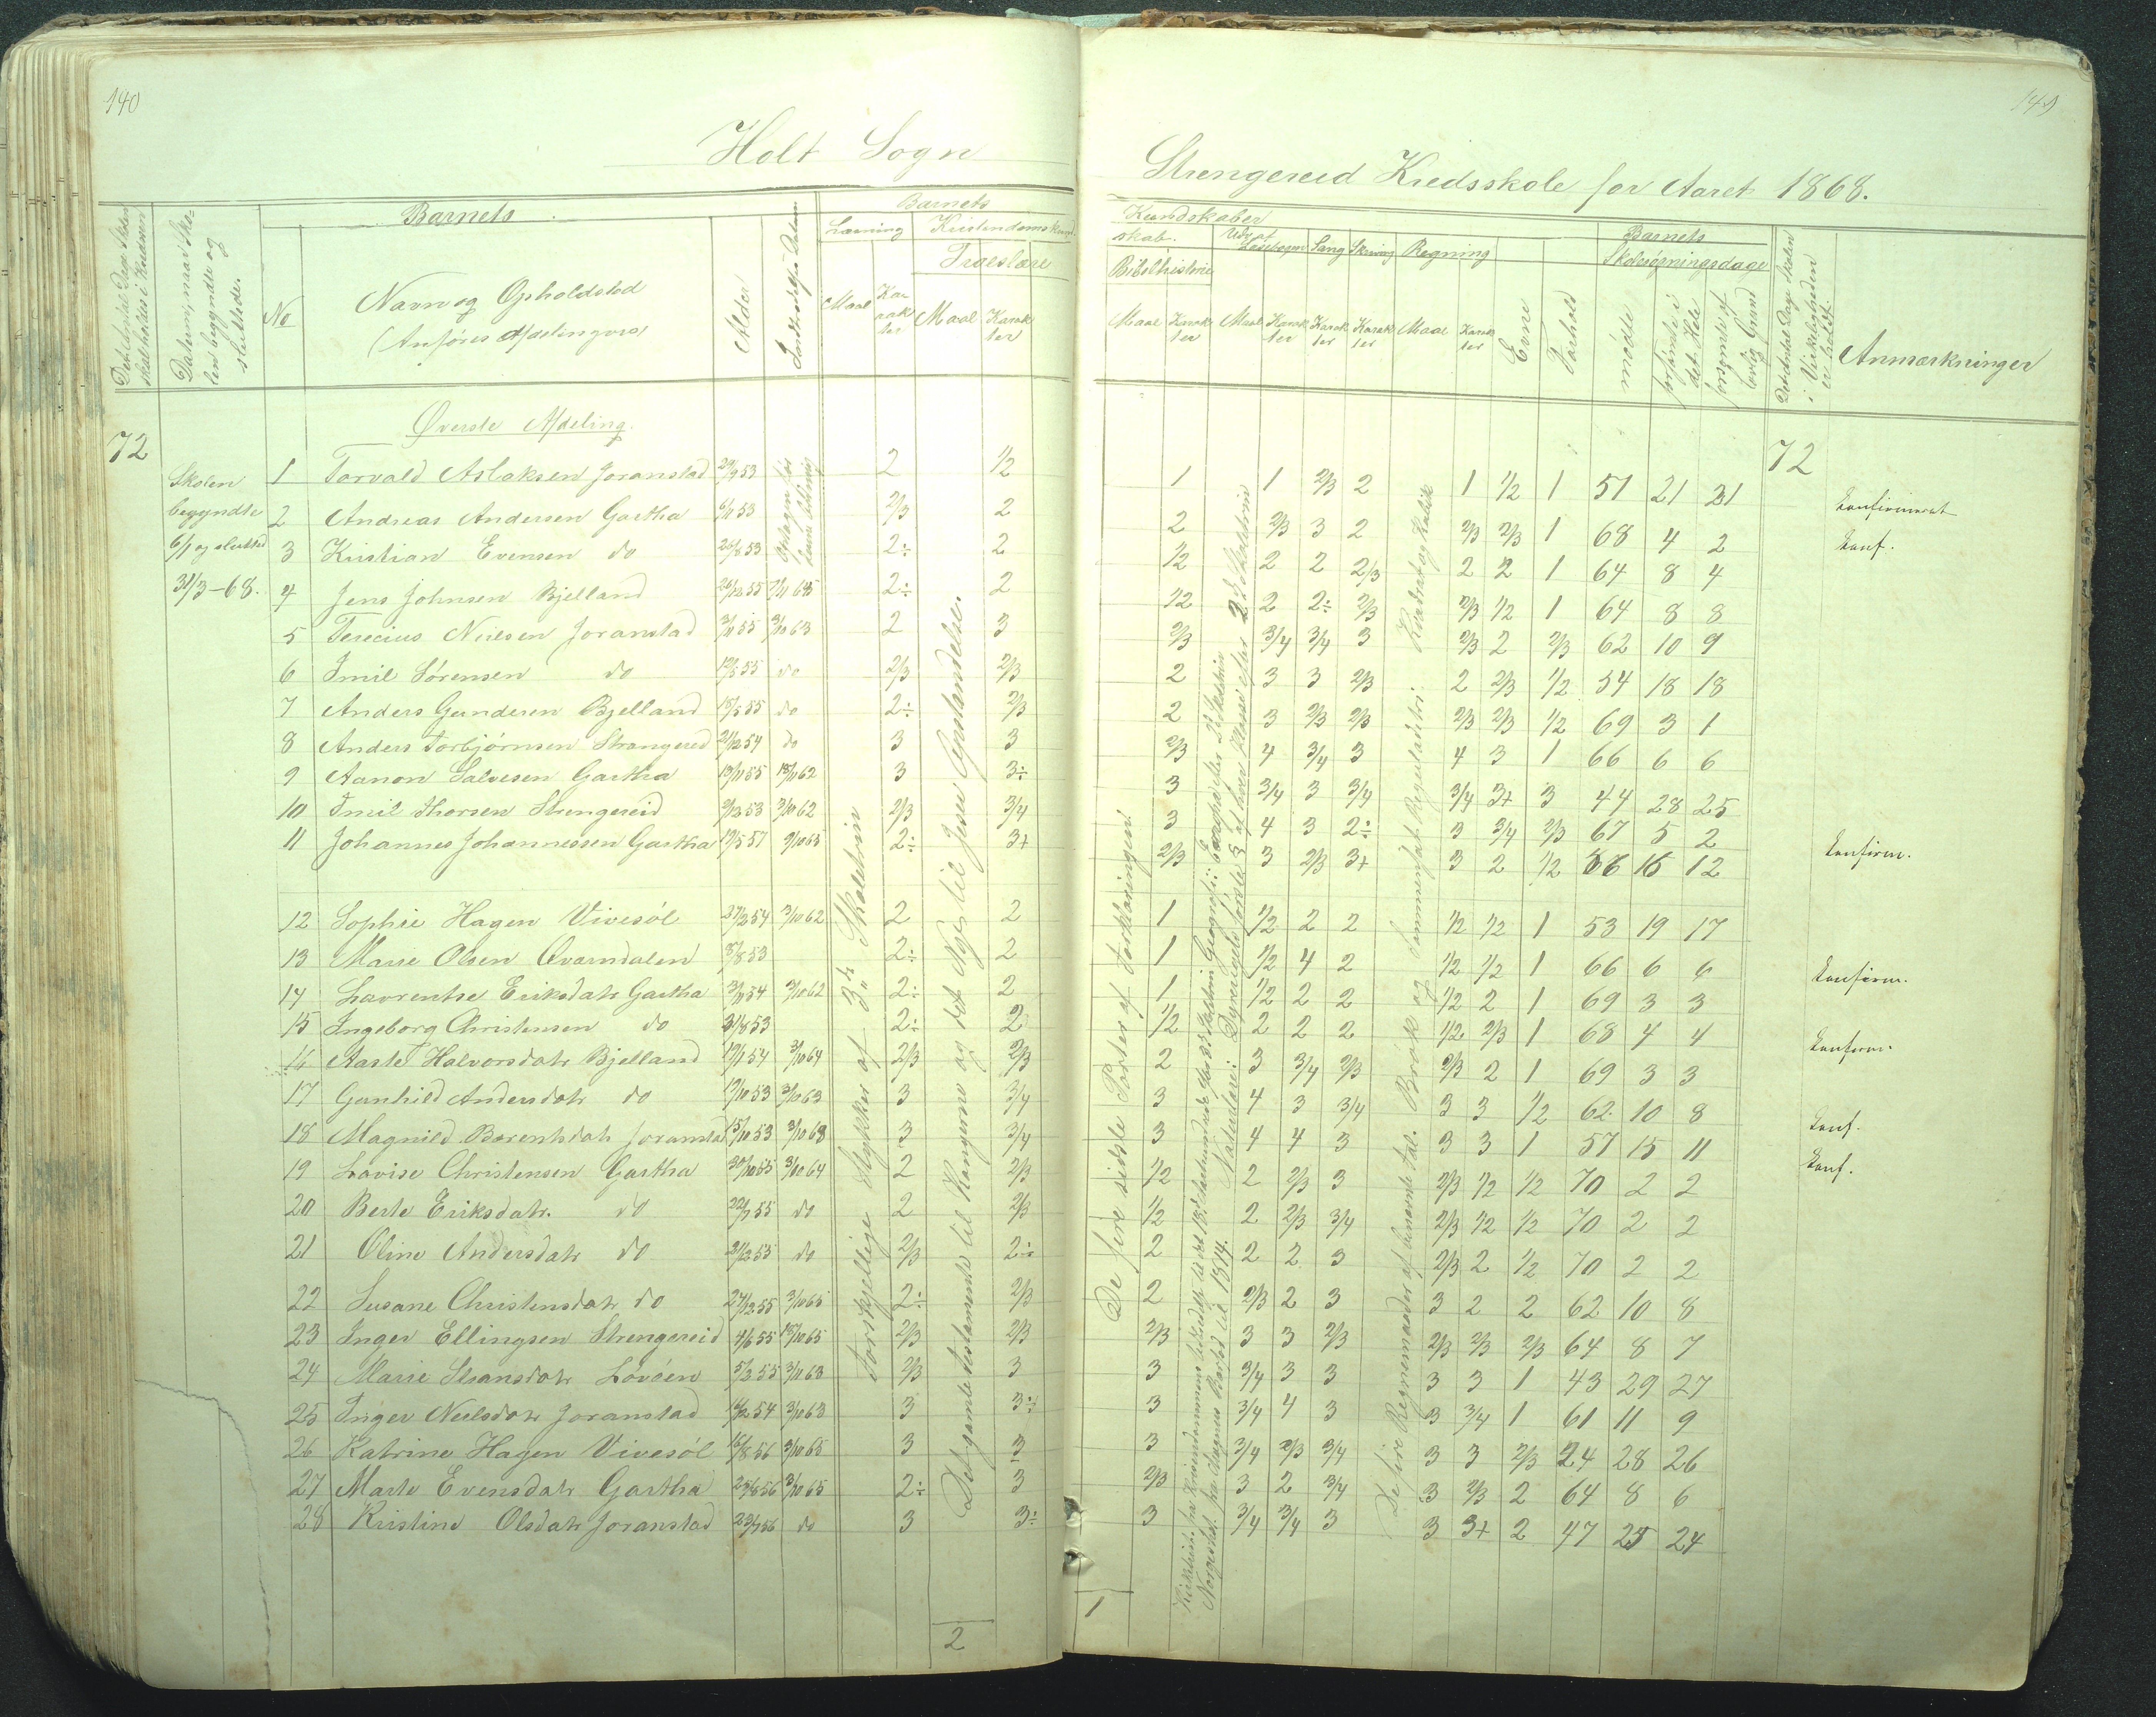 140
Holt Sogn
Barnets
Barnets
Læsning Kristendomskund-
Troeslære
No
Navn og Opholdsted
(Anføres Afdelingvis)
Alder
Maal
Karakter
Maal
Karakter
Datum, naar Skolen begyndte og sluttede.
Øverste Afdeling.
72
Skolen
begyndte
6/1 og slutted
31/3-68.
1 Torvald Aslaksen Joranstad 29/9 53 2 1/2
2 Andreas Andersen Gartha 6/11 53 2/3 2
3 Kristian Evensen do 26/8 53 2÷ 2
4 Jens Johnsen Bjelland 26/12 55 2÷ 2
5 Terecius Neilsen Joranstad 3/11 55 3/10 63 2 3
6 Emil Sørensen do 12/5 55 do 2/3 2/3
7 Anders Gundersen Bjelland 15/5 55 do 2÷ 2/3
8 Anders Torbjørnsen Strangereid 21/12 54 do 3 3
9 Aanon Salvesen Gartha 13/11 55 18/11 62 3 3÷
10 Emil Thorsen Strengereid 2/12 53 3/10 62 2/3 3/4
11 Johannes Johannessen Gartha 19/5 57 9/10 65 2÷ 3+
12 Sophie Hagen Vivesøl 27/2 54 3/10 62 2 2
13 Marie Olsen Qvarndalen 3/8 53 2÷ 2
14 Lavrentse Eriksdatr Gartha 3/3 54 3/10 62 2÷ 2
15 Ingeborg Christensen do 31/8 53 2÷ 2
16 Aaste Halvorsdatr Bjelland 19/1 54 3/10 64 2/3 2/3
17 Gunhild Andersdatr do 17/10 53 3/10 63 3 3/4
18 Magnild Berentsdatr Joranstad 15/10 53 3/10 68 3 3/4
19 Lovise Christensen Gartha 30/10 55 3/10 64 2 2/3
20 Berte Eriksdatr. do 22/7 55 do 2 2/3
21 Oline Andersdatr do 21/12 53 do 2/3 2÷
22 Susane Christensdatr do 27/12 55 3/10 65 2÷ 2/3
23 Inger Ellingsen Strengereid 4/6 55 15/10 65 2/3 2/3
24 Marie Hansdatr Løvøen 5/2 55 3/11 63 2/3 3
25 Inger Neilsdatr Joranstad 16/2 54 3/10 63 3 3÷
26 Katrine Hagen Vivesøl 16/8 56 3/10 65 3 3
27 Marte Evensdatr Gartha 25/8 56 3/10 65 2÷ 3
28 Kristine Olsdatr Joranstad 23/7 56 do 3 3÷
Forskjellige Stykker af 3die Skoletrin
Det gamle testamente til Kongerne og det Nye til Jesu Opstandelse.
2
149
Strengereid Kredsskole for Aaret 1868.
Kundskaber
skab.
Udv. af Læsebogen Sang Skrivning Regning
Barnets
Skolesøgningsdage
Bibelhistorie
Maal Karakter Maal Karakter Karakter Karakter Maal Karakter
Evne
Forhold
mødte
forsømte i det Hele
forsømte af lovlig Grund
Det Antal Dage Skolen i Virkeligheden er holdt.
Anmærkninger
72
1 1 2/3 2 1 1/2 1 51 21 21 Konfirmeret
2 2/3 3 2 2/3 2/3 1 68 4 2 Konf.
1/2 2 2 2/3 2 2 1 64 8 4
1/2 2 2÷ 2/3 2/3 1/2 1 64 8 8
2/3 3/4 3/4 3 2/3 2 2/3 62 10 9
2 3 3 2/3 2 2/3 1/2 54 18 18
2 3 2/3 2/3 2/3 2/3 1/2 69 3 1
2/3 4 3/4 3 4 3 1 66 6 6
3 3/4 3 3/4 3/4 3+ 3 44 28 25
3 4 3 2÷ 3 3/4 2/3 67 5 2 Konfirm.
2/3 3 2/3 3+ 3 2 1/2 56 16 12
1 1/2 2 2 1/2 1/2 1 53 19 17
1 1/2 4 2 1/2 1/2 1 66 6 6 Konfirm.
1 1/2 2 2 1/2 2 1 69 3 3
1/2 2 2 2 1/2 2/3 1 68 4 4 Konfirm.
2 3 3/4 2/3 2/3 2 1 69 3 3
3 4 3 3/4 3 3 1/2 62 10 8 Konf.
3 4 4 3 3 3 1 57 15 11 Konf.
1/2 2 2/3 3 2/3 1/2 1/2 70 2 2
1/2 2 2/3 3/4 2/3 1/2 1/2 70 2 2
2 2 2 3 2/3 2 1/2 70 2 2
2 2/3 2 3 3 2 2 62 10 8
2/3 3 3 2/3 2/3 2/3 2/3 64 8 7
3 3/4 3 3 3 3 1 43 29 27
3 3/4 4 3 3 3/4 1 61 11 9
3 3/4 2/3 3/4 3 3 2/3 24 28 26
2/3 3 2 3/4 3 2/3 2 64 8 6
3 3/4 3/4 3 3 3+ 2 47 25 24
De fire sidste Parter af Forklaringen!
De fire Regnemaader af benævnte Tal. Brøk og
1